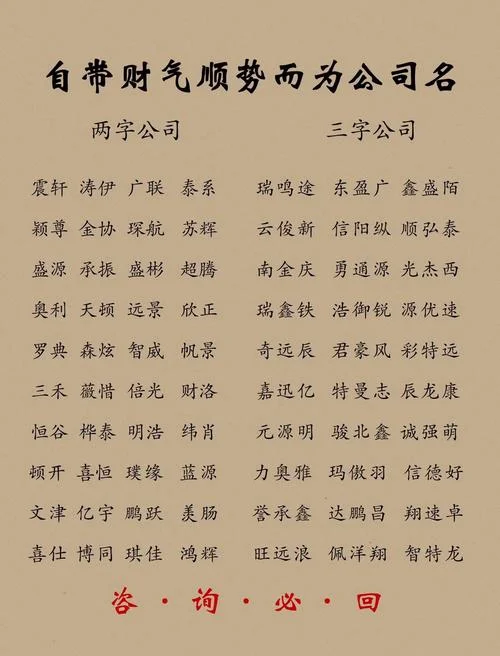 自带财气顺势而为公司名
两字公司 三字公司
震轩 涛伊 广联 泰系 瑞鸣途 东盈广 鑫盛陌
颖尊 金协 琛航 苏辉 云俊新 信阳纵 顺弘泰
盛源 承振 盛彬 超腾 南金庆 勇通源 光杰西
奥利 天顿 远景 欣正 瑞鑫铁 浩御锐 源优速
罗典 森炫 智威 帆景 奇远辰 君豪风 彩特远
三禾 薇惜 倍光 财洛 嘉迅亿 特曼志 辰龙康
恒谷 桦泰 明浩 纬肖 元源明 骏北鑫 诚强萌
顿开 喜恒 璞缘 蓝源 力奥雅 玛傲羽 信德好
文津 亿宇 鹏跃 羡肠 誉承鑫 达鹏昌 翔速卓
喜仕 博同 琪佳 鸿辉 旺远浪 佩洋翔 智特龙
咨·询·必·回